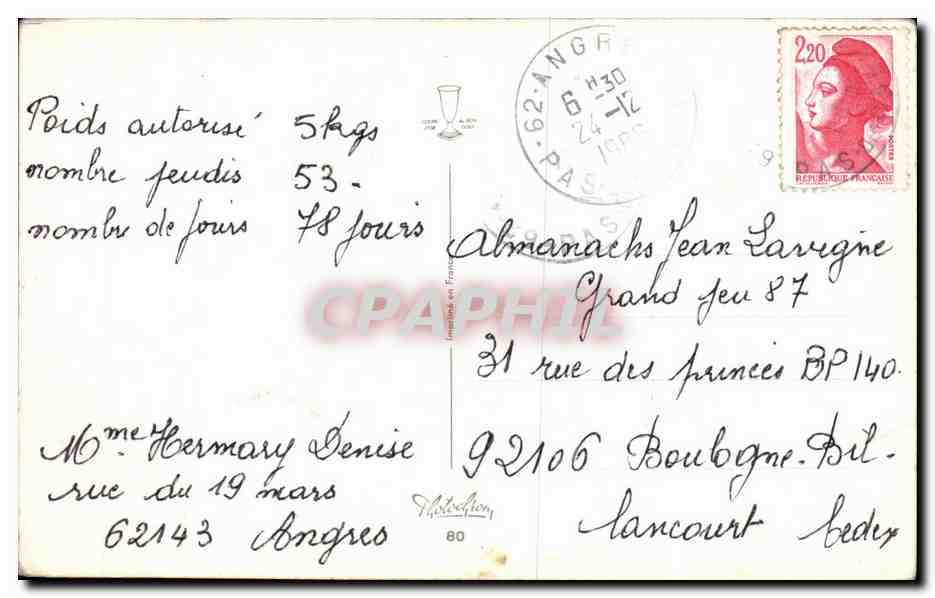 Poids autorisé 5kgs
nombre jeudis 53-
nombre de jours 78 jours
Mme Hermary Denise
rue du 19 mars
62143 Angres
Almanachs Jean Lavigne
Grand jeu 87
31 rue des princes BP 140.
92106 Boulogne-Bil-
lancourt Cedex
2,20
POSTES
RÉPUBLIQUE FRANÇAISE
62-ANGR
6 H 30
24-12
PAS-
PAS
Imprimé en France
Photochrom
80
CPAPHIL